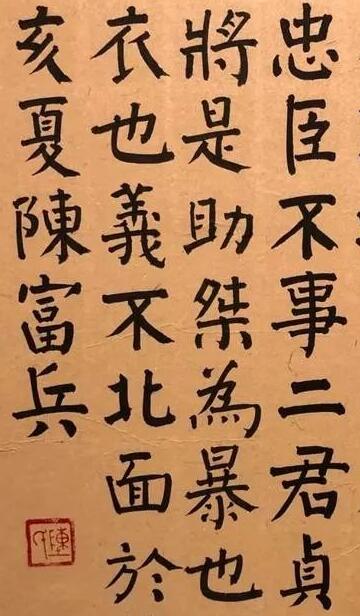 忠臣不事二君貞
將是助桀為暴也
衣也義不北面於
亥夏陳富兵